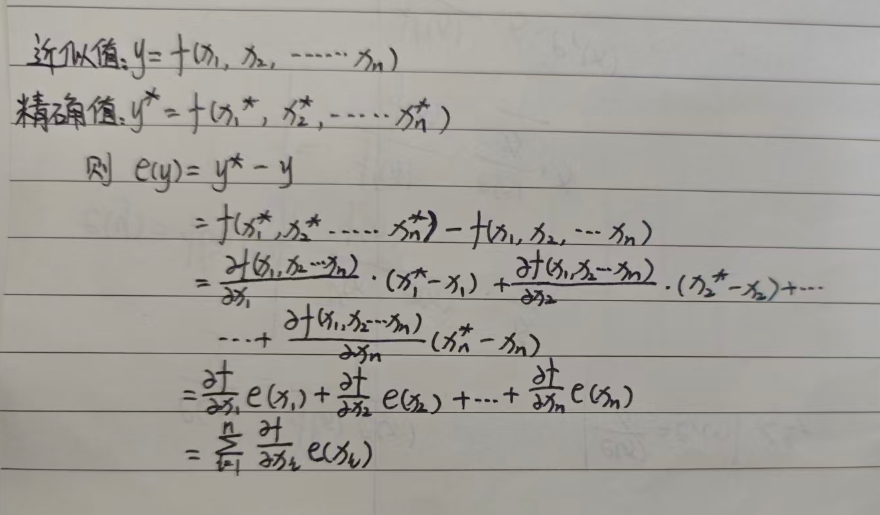 近似值: y = f(x₁, x₂, ⋯⋯ xₙ)
精确值: y* = f(x₁*, x₂*, ⋯⋯ xₙ*)
则 e(y) = y* − y
= f(x₁*, x₂* ⋯⋯ xₙ*) − f(x₁, x₂, ⋯ xₙ)
= ∂f(x₁, x₂ ⋯ xₙ)/∂x₁ · (x₁* − x₁) + ∂f(x₁, x₂ ⋯ xₙ)/∂x₂ · (x₂* − x₂) + ⋯
⋯ + ∂f(x₁, x₂ ⋯ xₙ)/∂xₙ (xₙ* − xₙ)
= ∂f/∂x₁ e(x₁) + ∂f/∂x₂ e(x₂) + ⋯ + ∂f/∂xₙ e(xₙ)
= ∑ᵢ₌₁ⁿ ∂f/∂xᵢ e(xᵢ)